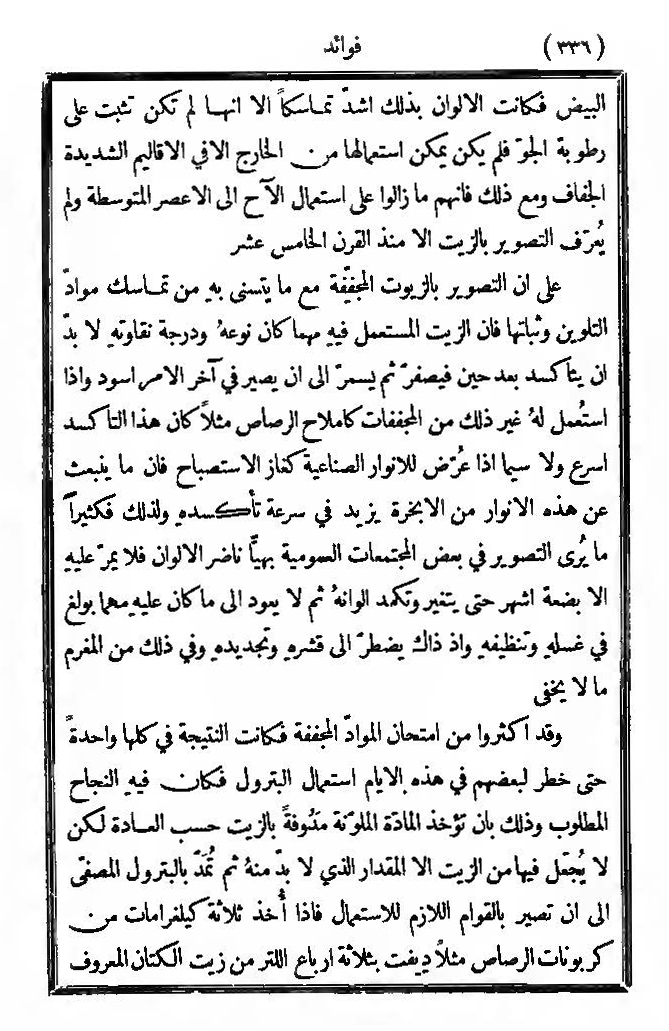 (٣٣٦) فوائد
البيض فكانت الالوان بذلك اشدّ تماسكاً الا انها لم تكن تثبت على
رطوبة الجوّ فلم يكن يمكن استعمالها من الخارج الا في الاقاليم الشديدة
الجفاف ومع ذلك فانهم ما زالوا على استعمال الآح الى الاعصر المتوسطة ولم
يُعرَف التصوير بالزيت الا منذ القرن الخامس عشر
على ان التصوير بالزيوت المجفِّفة مع ما يتسنى بهِ من تماسك موادّ
التلوين وثباتها فان الزيت المستعمل فيهِ مهما كان نوعهُ ودرجة نقاوتهِ لا بدّ
ان يتأكسد بعد حين فيصفرّ ثم يسمرّ الى ان يصير في آخر الامر اسود واذا
استُعمل لهُ غير ذلك من المجففات كاملاح الرصاص مثلاً كان هذا التأكسد
اسرع ولا سيما اذا عُرّض للانوار الصناعية كغاز الاستصباح فان ما ينبعث
عن هذه الانوار من الابخرة يزيد في سرعة تأكسدهِ ولذلك فكثيراً
ما يُرى التصوير في بعض المجتمعات العمومية بهيّاً ناضر الالوان فلا يمرّ عليهِ
الا بضعة اشهر حتى يتغير وتكمد الوانهُ ثم لا يعود الى ما كان عليهِ مهما بولغ
في غسلهِ وتنظيفهِ واذ ذاك يضطرّ الى قشرهِ وتجديدهِ وفي ذلك من المغرم
ما لا يخفى
وقد اكثروا من امتحان الموادّ المجففة فكانت النتيجة في كلها واحدةً
حتى خطر لبعضهم في هذه الايام استعمال البترول فكان فيهِ النجاح
المطلوب وذلك بان تؤخذ المادّة الملوّنة مَدُوفةً بالزيت حسب العادة لكن
لا يُجعَل فيها من الزيت الا المقدار الذي لا بدّ منهُ ثم تُمَدّ بالبترول المصفّى
الى ان تصير بالقوام اللازم للاستعمال فاذا أُخذ ثلاثة كيلغرامات من
كربونات الرصاص مثلاً ديفت بثلاثة ارباع اللتر من زيت الكتان المعروف